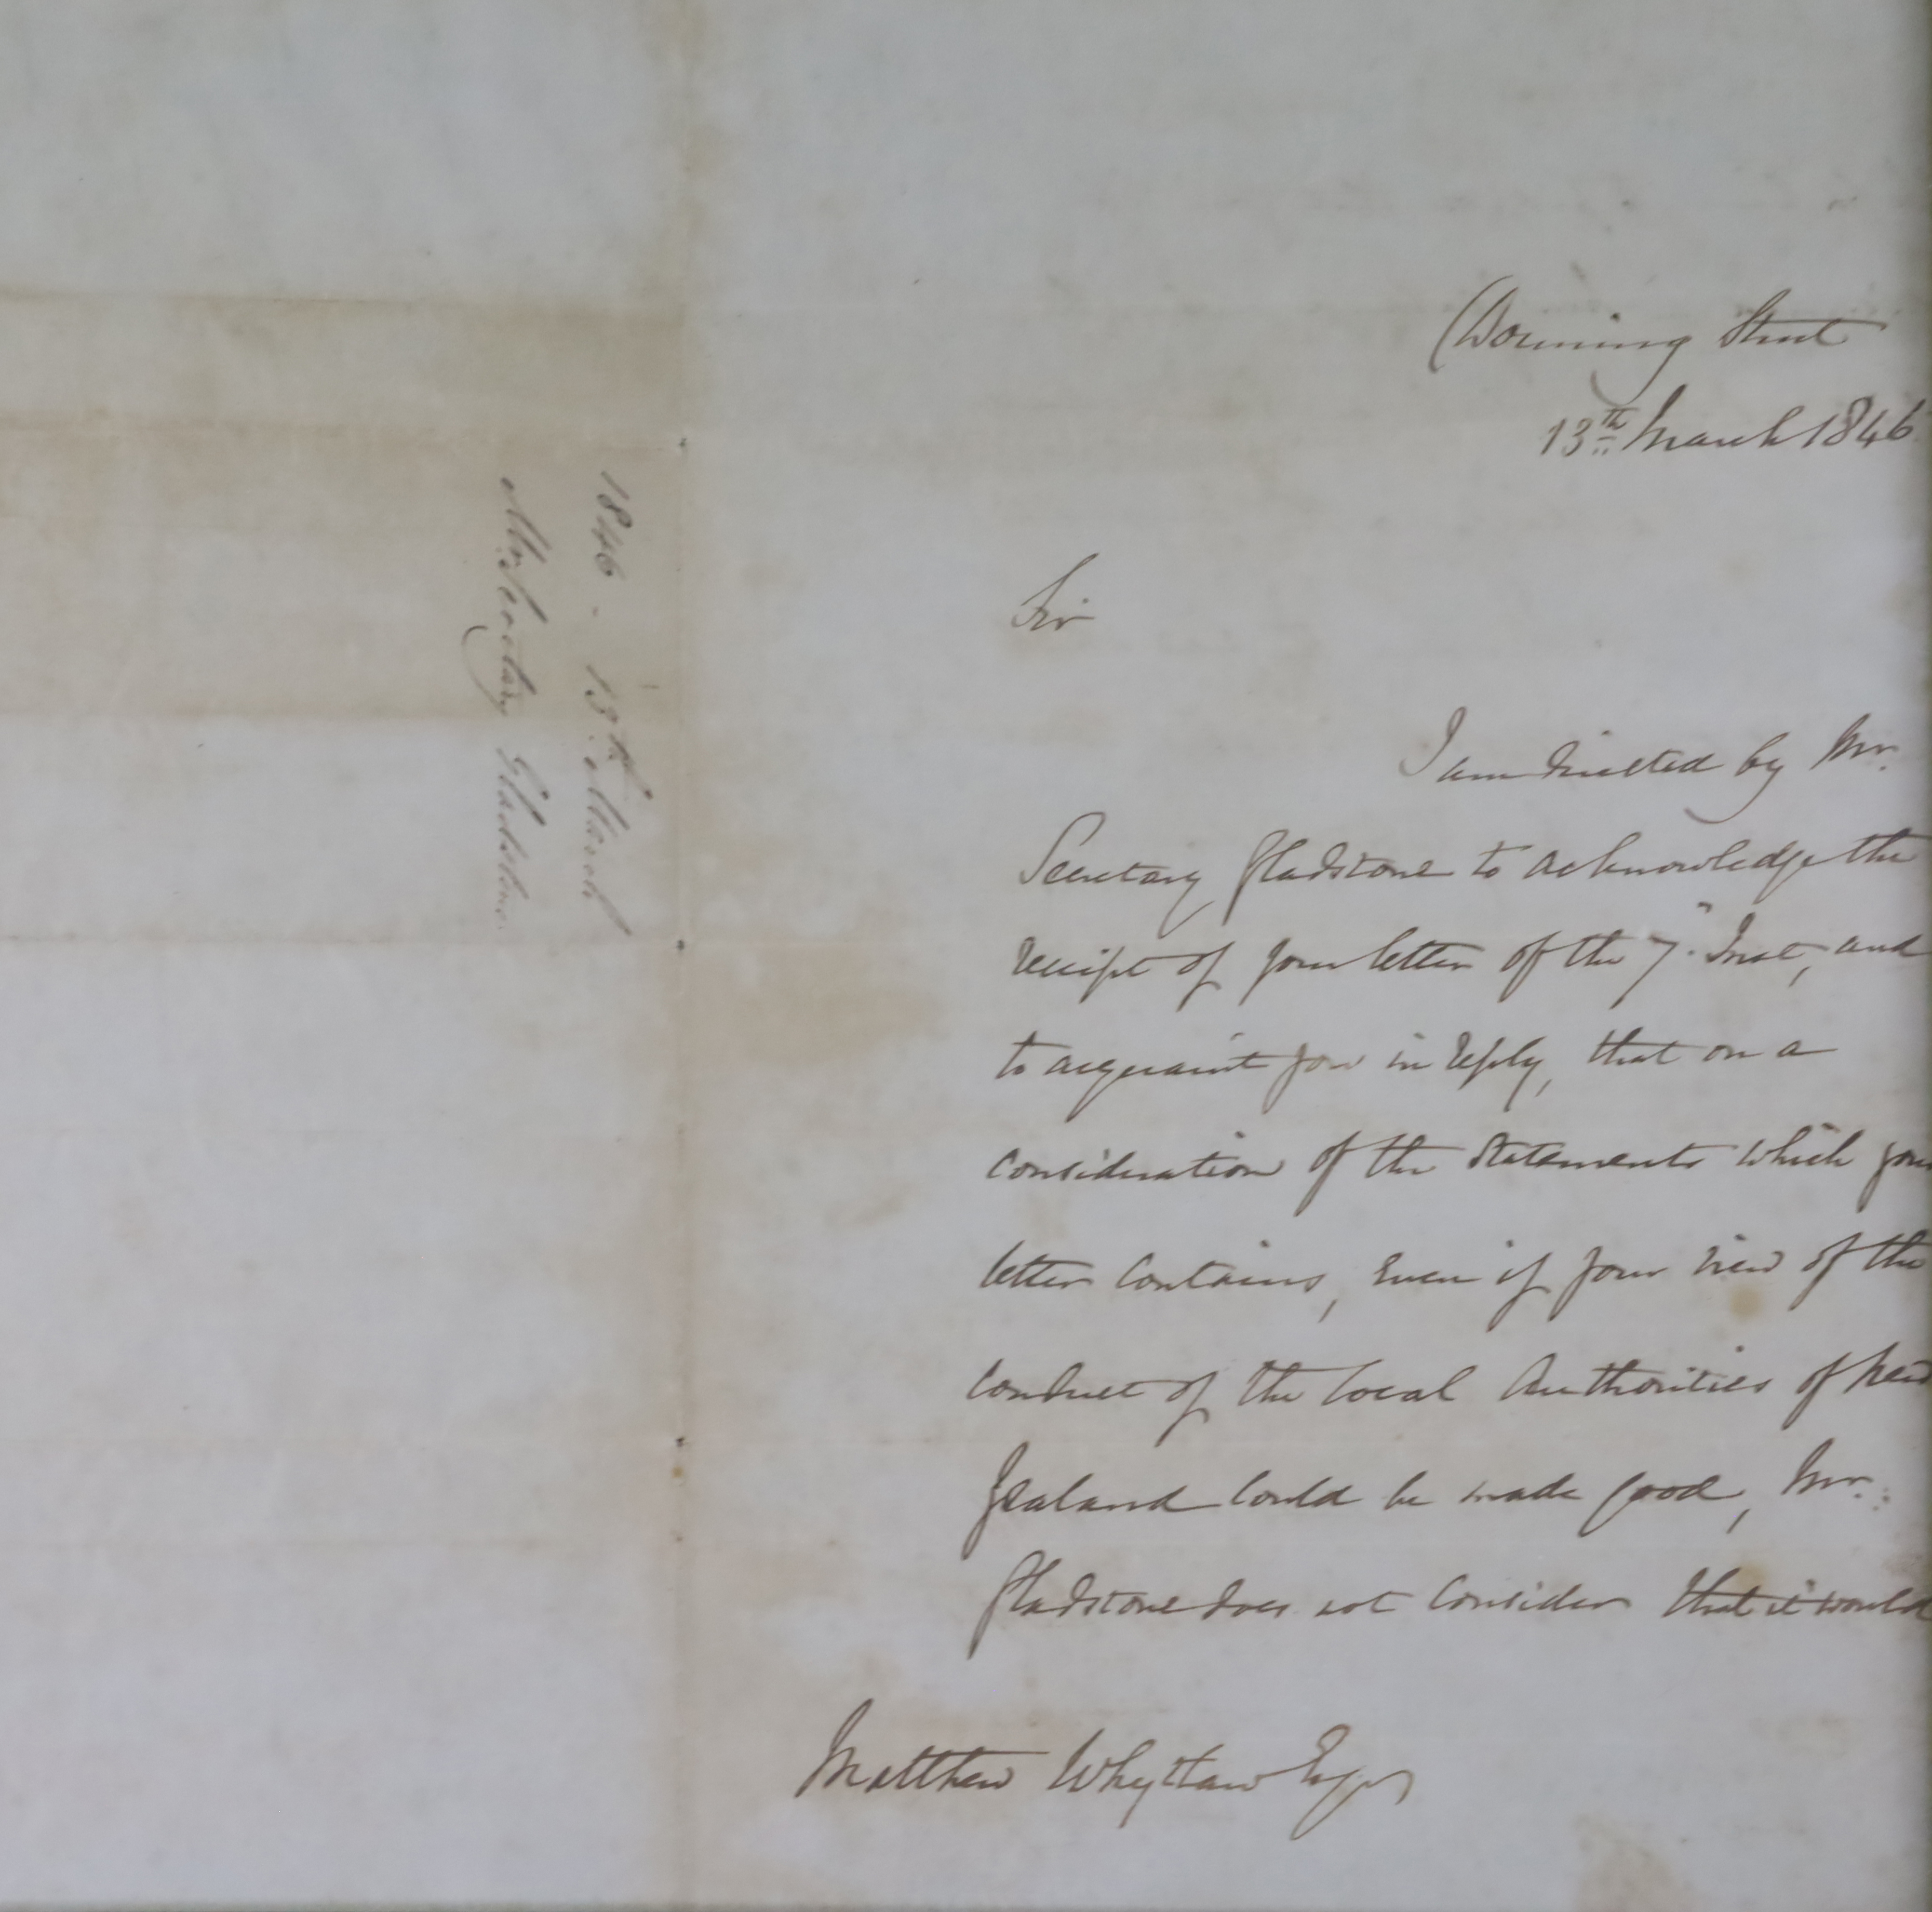 1846 - 13th March
Mr Secretary Gladstone.
Downing Street
13th March 1846
Sir
I am directed by Mr.
Secretary Gladstone to acknowledge the
receipt of your letter of the 7" Inst, and
to acquaint you in reply, that on a
consideration of the statements which your
letter contains, even if your view of the
conduct of the local Authorities of New
Zealand could be made good, Mr.
Gladstone does not consider that it would
Matthew Whytlaw Esqr